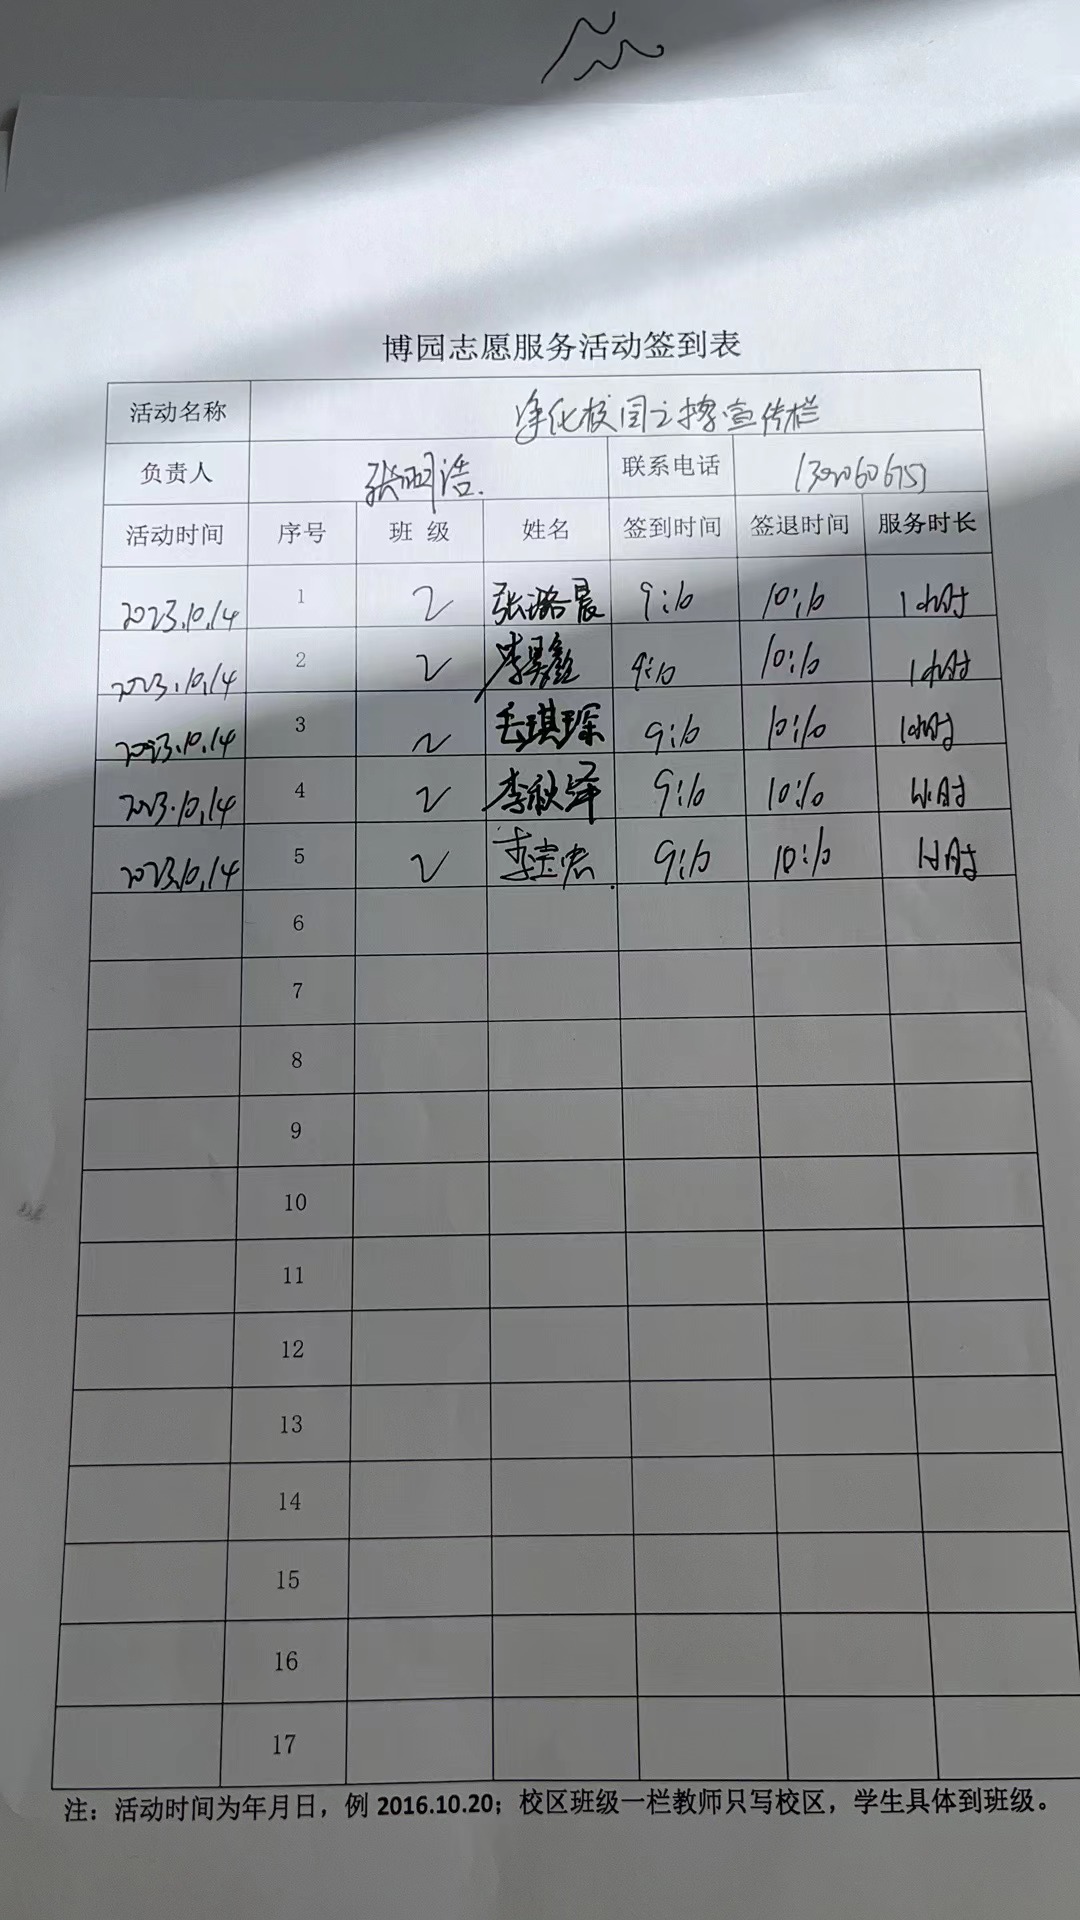 博园志愿服务活动签到表
活动名称 净化校园之擦宣传栏
负责人 张明浩 联系电话
活动时间 序号 班 级 姓名 签到时间 签退时间 服务时长
2023.10.14 1 2 张潞晨 9:10 10:10 1小时
2023.10.14 2 2 李昊鑫 9:10 10:10 1小时
2023.10.14 3 2 毛琪琛 9:10 10:10 1小时
2023.10.14 4 2 李秋泽 9:10 10:10 1小时
2023.10.14 5 2 李宗宏 9:10 10:10 1小时
6
7
8
9
10
11
12
13
14
15
16
17
注：活动时间为年月日，例 2016.10.20；校区班级一栏教师只写校区，学生具体到班级。